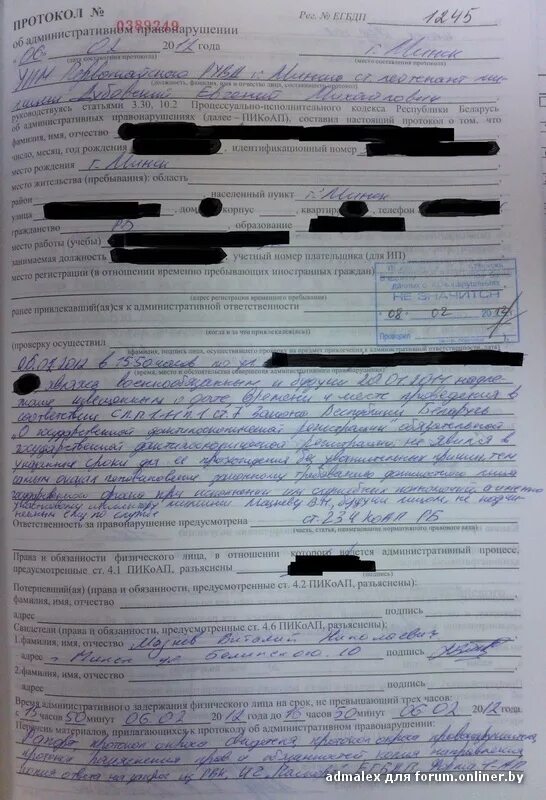 ПРОТОКОЛ № 0389349 Рег. № ЕГБДП 1245
об административном правонарушении
06 02 2012 года г. Минск
(дата составления протокола) (место составления протокола)
УИМ Первомайского РУВД г. Минска ст. лейтенант ми-
(должность, фамилия, имя и отчество лица, составившего протокол)
лиции Евгений Михайлович
руководствуясь статьями 3.30, 10.2 Процессуально-исполнительного кодекса Республики Беларусь
об административных правонарушениях (далее – ПИКоАП), составил настоящий протокол о том, что
фамилия, имя, отчество
число, месяц, год рождения , идентификационный номер
место рождения г. Минск
место жительства (пребывания): область
район населенный пункт г. Минск
улица , дом корпус , квартира , телефон
гражданство РБ , образование
место работы (учебы)
занимаемая должность , учетный номер плательщика (для ИП)
место регистрации (в отношении временно пребывающих иностранных граждан)
(адрес регистрации временного пребывания)
НЕ ЗНАЧИТСЯ
ранее привлекавший(ая)ся к административной ответственности
08 02 2012
(когда и за что привлекался(ась))
Проверил
(проверку осуществил
06.02.2012 в 15 50 часов по ул.
(время, место и обстоятельства совершения правонарушения)
являясь военнообязанным и будучи 20.01.2011 надле-
жаще извещенным о дате, времени и месте проведения в
соответствии с п.п. 1.1 п.1 ст.7 Закона Республики Беларусь
"О государственной дактилоскопической регистрации" обязательной
государственной дактилоскопической регистрации не явился в
указанные сроки для ее прохождения без уважительных причин, тем
самым оказал неповиновение законному требованию должностного лица
государственного органа при исполнении им служебных полномочий а именно
участковому инспектору милиции В.Н., другим лицом, не подчи-
ненным ему по службе
Ответственность за правонарушение предусмотрена ст. 23.4 КоАП РБ
(часть, статья, наименование нормативного правового акта)
Права и обязанности физического лица, в отношении которого ведется административный процесс,
предусмотренные ст. 4.1 ПИКоАП, разъяснены
(подпись)
Потерпевший(ая) (права и обязанности, предусмотренные ст. 4.2 ПИКоАП, разъяснены):
фамилия, имя, отчество
адрес подпись
Свидетели (права и обязанности, предусмотренные ст. 4.6 ПИКоАП, разъяснены):
1.фамилия, имя, отчество Виталий Николаевич
адрес г. Минск ул. Белинского, 10 подпись
2.фамилия, имя, отчество
адрес подпись
Время административного задержания физического лица на срок, не превышающий трех часов:
с 15 часов 50 минут 06.02 2012 года до часов 50 минут 06.02 2012
Перечень материалов, прилагающихся к протоколу об административном правонарушении:
Рапорт, протокол опроса свидетеля, протокол опроса правонарушителя,
протокол разъяснения прав и обязанностей, копия направления
копия ответа на запрос из ЕГБДП,
admalex для forum.onliner.by